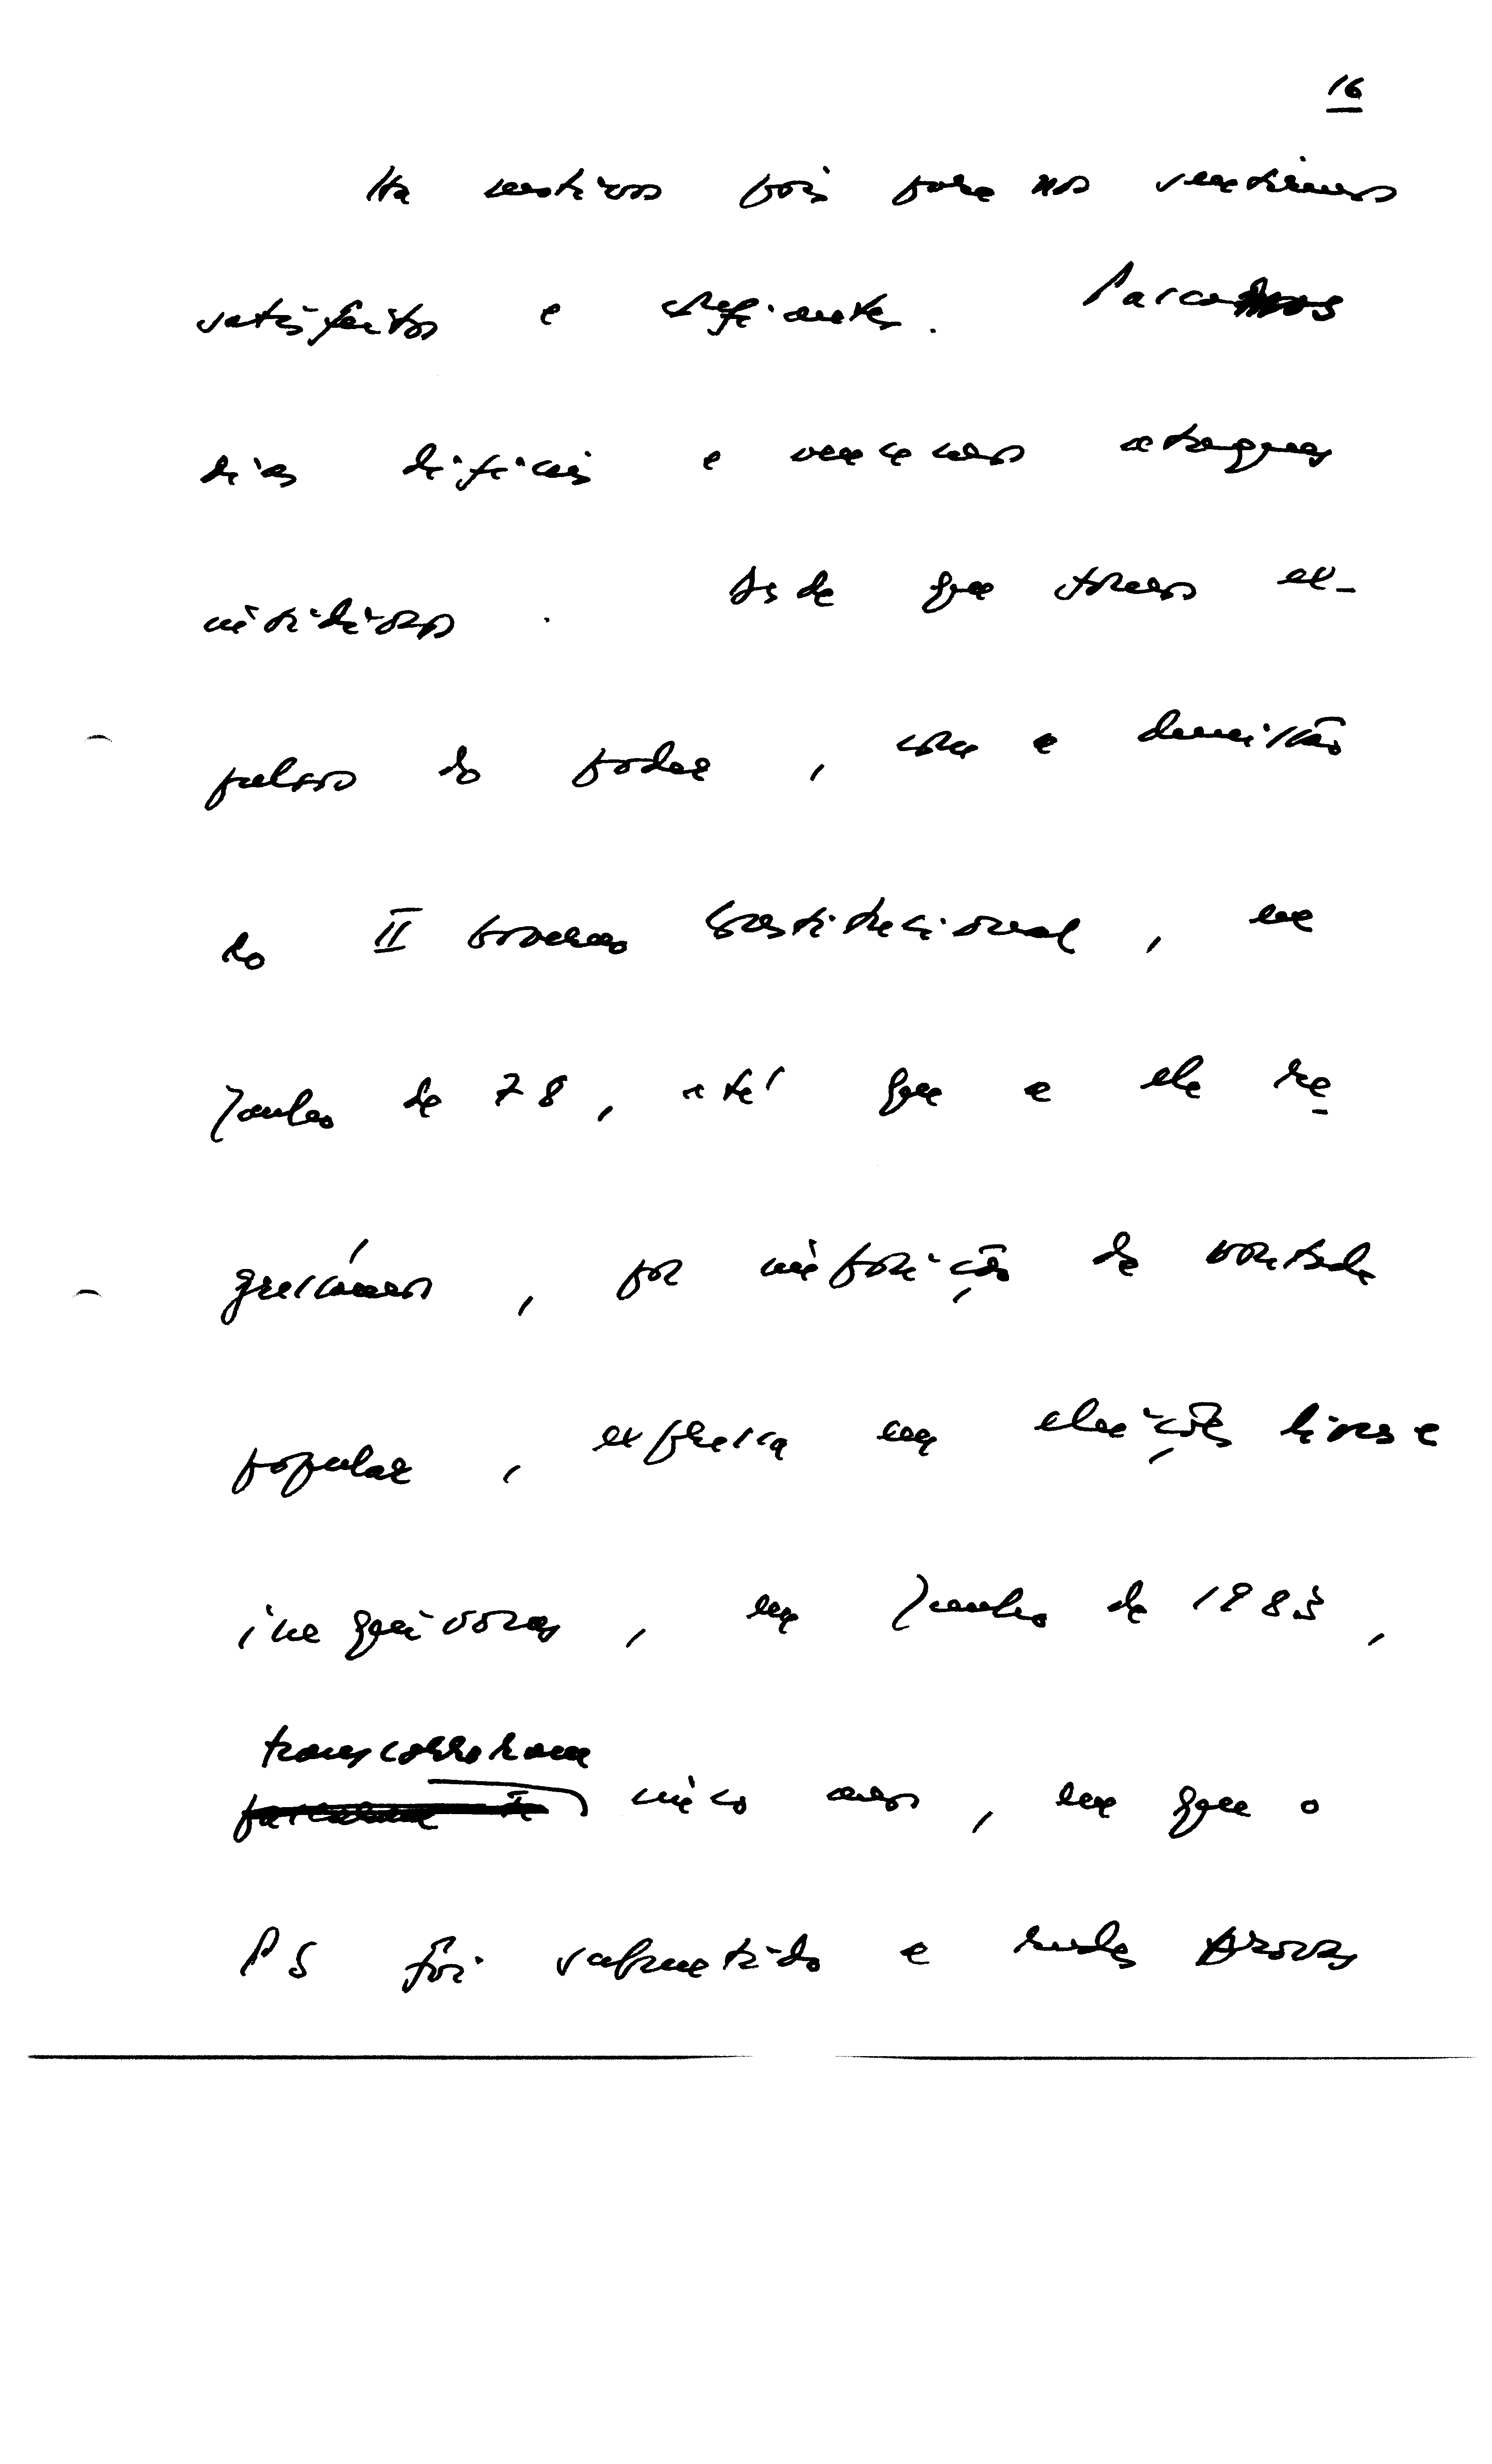 16
Há motivos pois para nos sentirmos
satisfeitos e confiantes. Passamos
dias difíceis e vencemos etapas
. Desde que fomos ex-
pulsos do poder, com a demissão
do II Governo Constitucional, em
Junho de 78, até que a ele re-
gressámos, por imposição da vontade
popular, expressa em eleições livres e
inequívocas, em Junho de 1983,
transcorreram
cinco anos, em que o
PS foi submetido a rudes provas